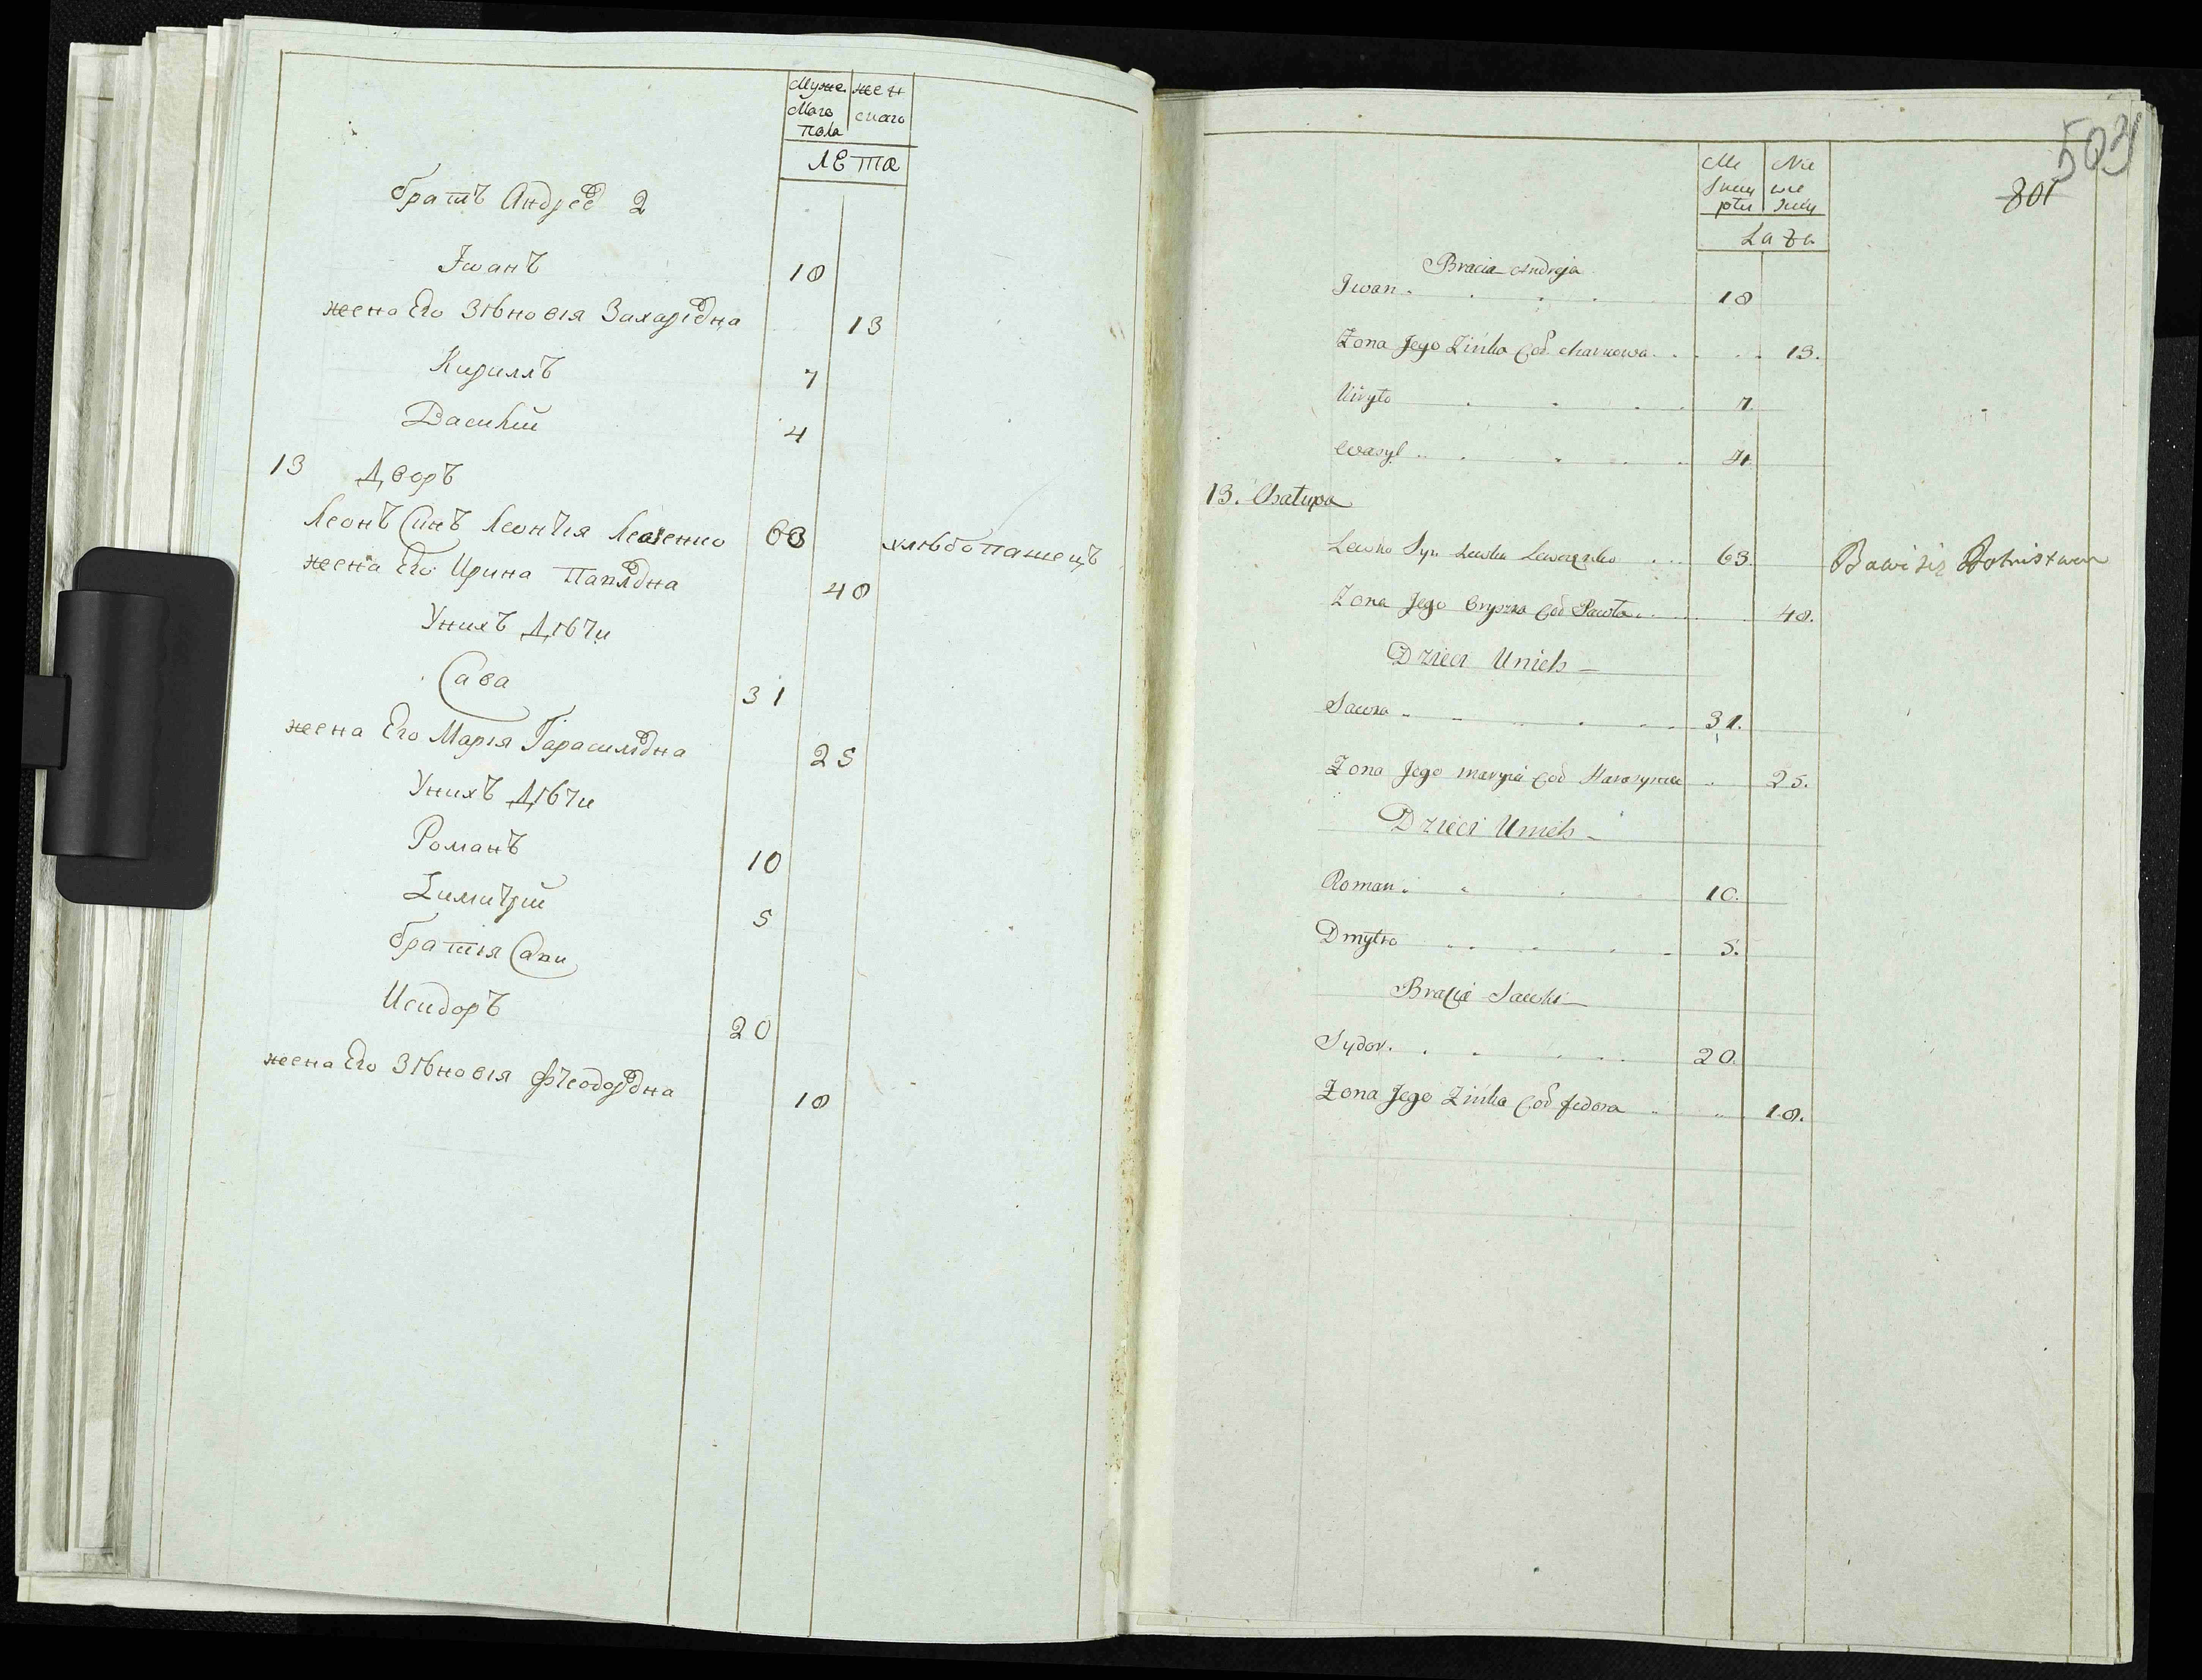 Муже
ского
пола
жен
скаго
лета
братъ Андрей 2
Іванъ 18
жена Его Зѣновія Захарівна 13
Кириллъ 7
Василій 4
13 Дворъ
Леонъ Синъ Леонтія 63 хлѣбопашецъ
жена Его Ирина Павлівна 48
Унихъ Дѣти
Сава 31
жена Его Марія Гарасимівна 25
Унихъ Дѣти
Романъ 10
Димитрій 5
братія Сави
Исидоръ 20
жена Его Зѣновія Феодорівна 18
503
801
Lata
Bracia Andreja
Iwan 18
Zona Jego Zinka Cod 13.
Kiryło 7.
Wasyl 4.
13. Chałupa
Lewko Syn Lewka Lewczenko 63. Bawi się Rolnistwem
Zona Jego Oryszka Cod Pawła 48.
Dzieci Unich
Sawka 31.
Zona Jego marya Cod Harasyma 25.
Dzieci Unich
Roman 10.
Dmytro 5.
Bracia Sawki
Sydor. 20.
Zona Jego Zinka Cod fedora 18.